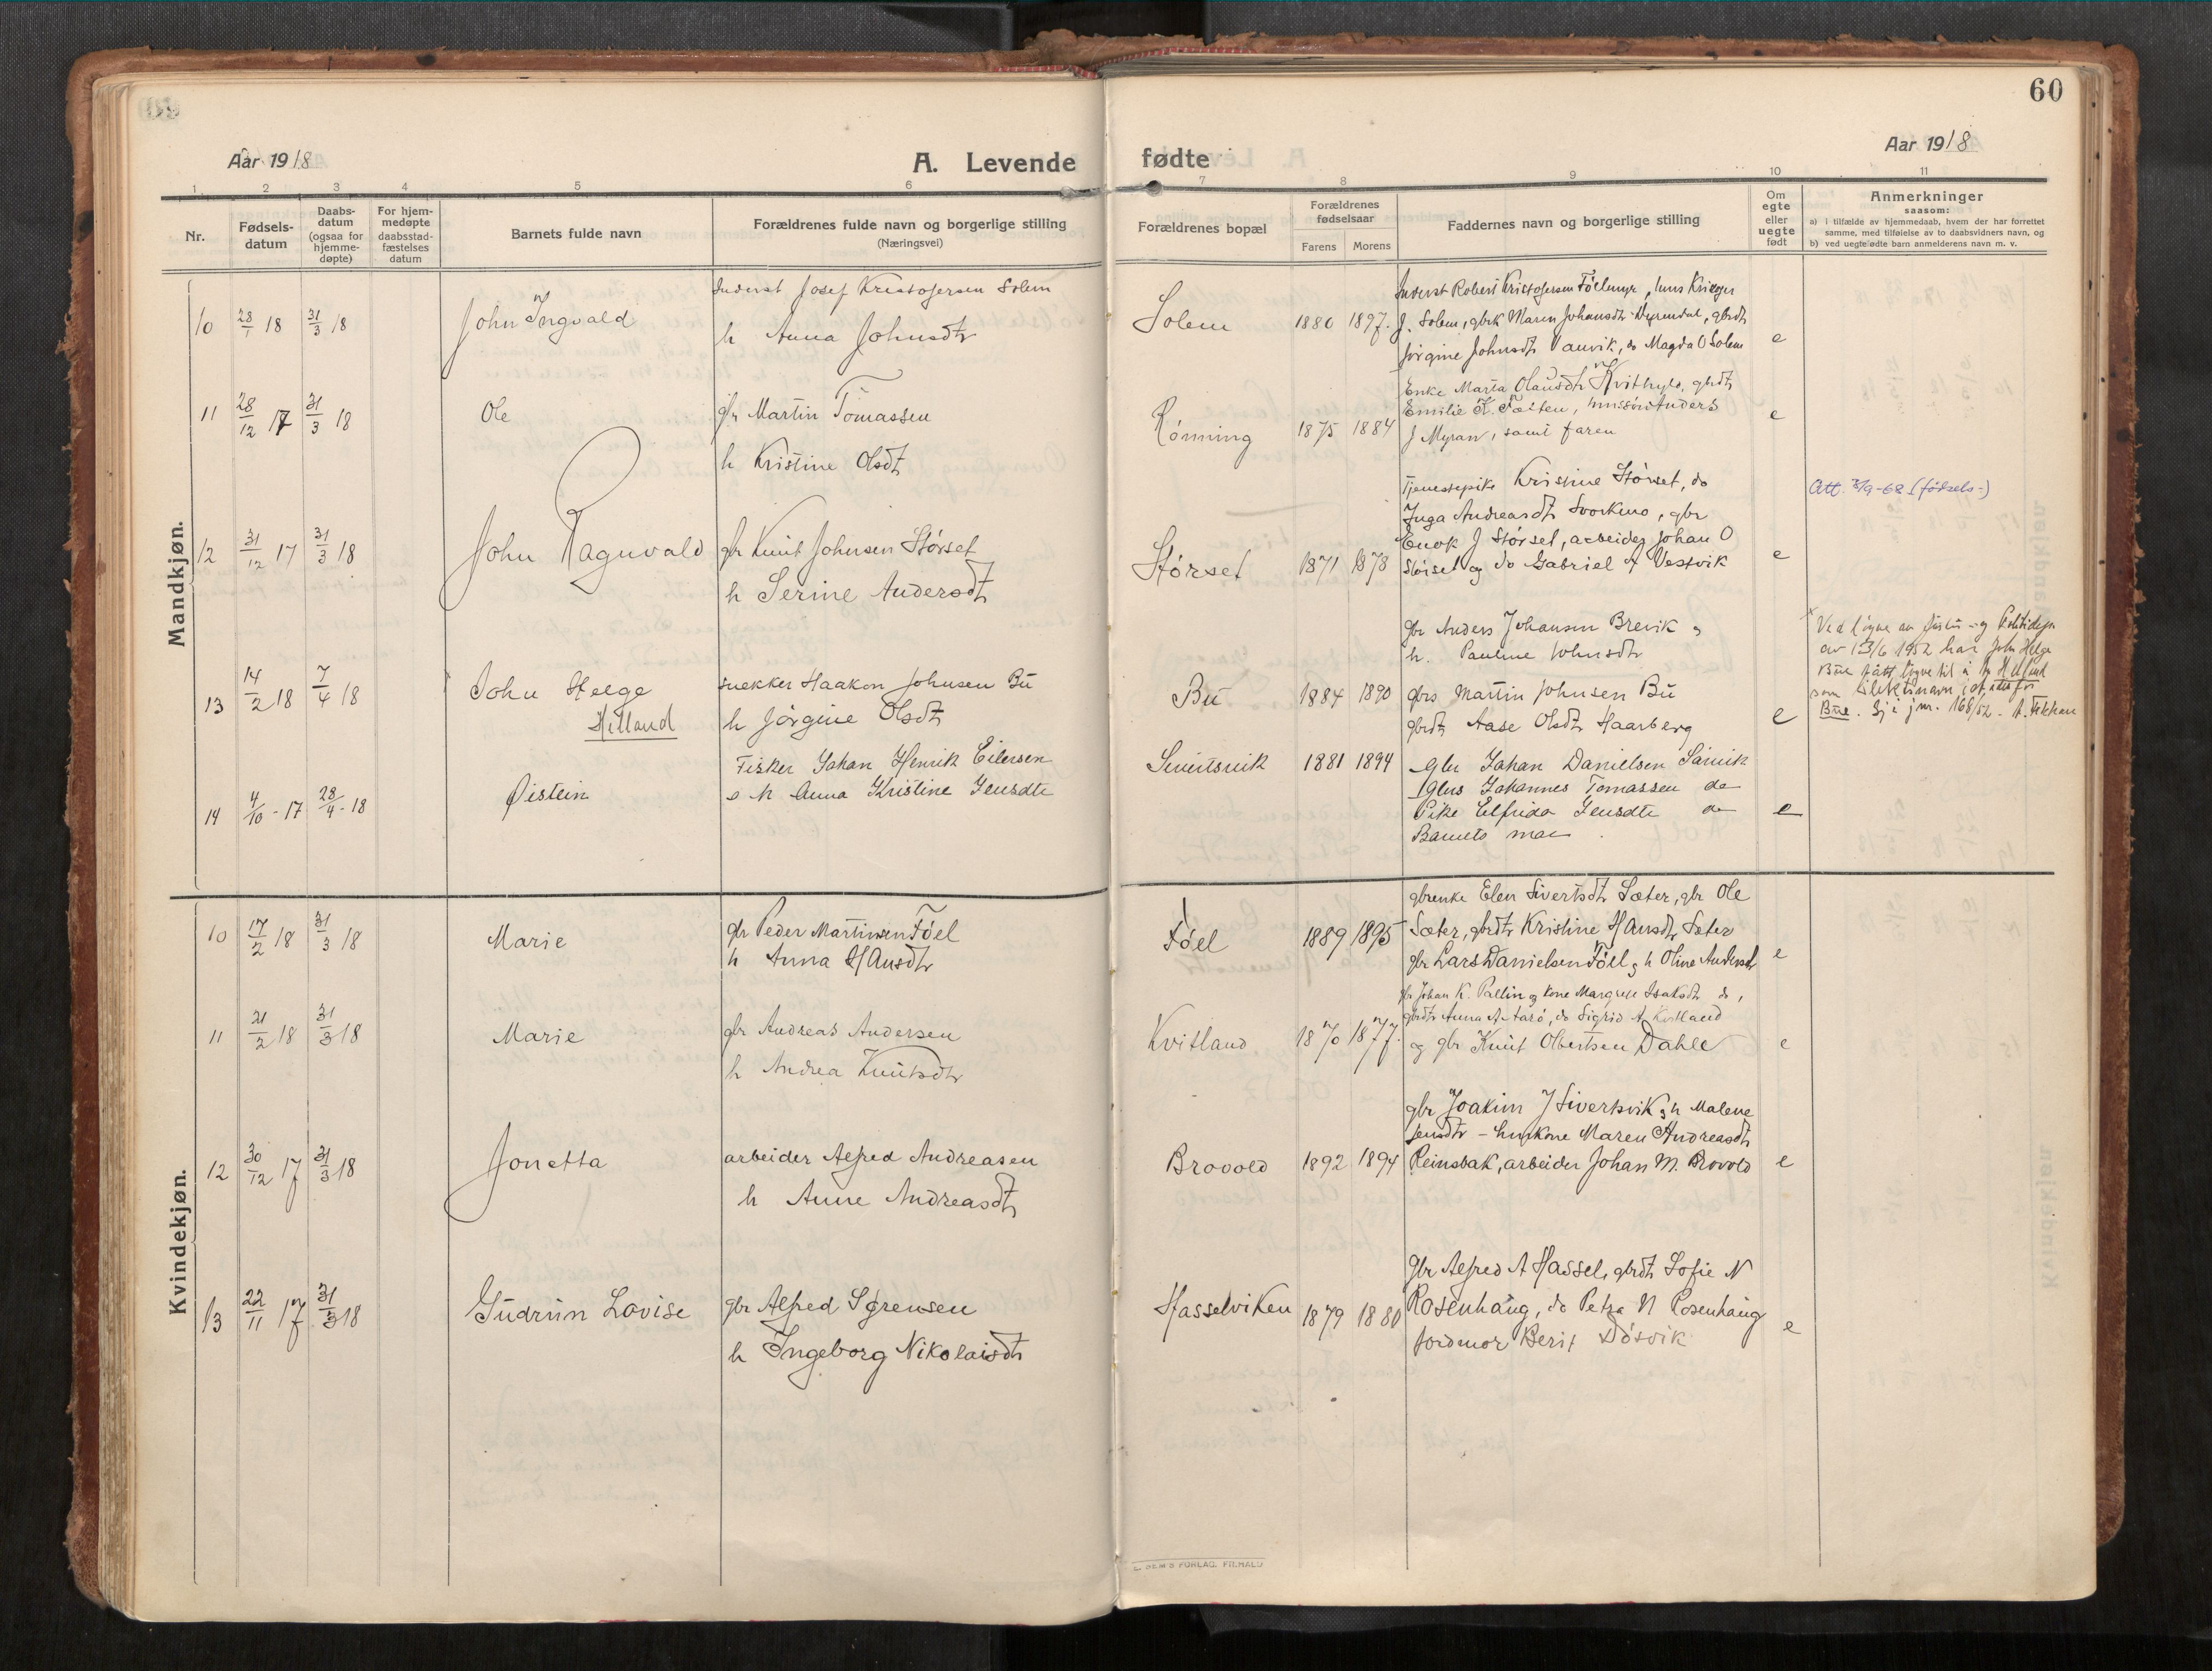 60
Aar 1918
A. Levende fødte
Aar 1918
1 2 3 4 5 6 7 8 9 10 11
Nr.
Fødsels-
datum
Daabs-
datum
(ogsaa for
hjemme-
døpte)
For hjem-
medøpte
daabsstad-
fæstelses
datum
Barnets fulde navn
Forældrenes fulde navn og borgerlige stilling
(Næringsvei)
Forældrenes bopæl
Forældrenes
fødselsaar
Farens Morens
Faddernes navn og borgerlige stilling
Om
egte
eller
uegte
født
Anmerkninger
saasom:
a) i tilfælde av hjemmedaab, hvem der har forrettet
samme, med tilføielse av to daabsvidners navn, og
b) ved uegtefødte barn anmelderens navn m. v.
Mandkjøn.
10 28/1 18 31/3 18 John Ingvald
Inderst Josef Kristofersen Solem
h Anna Johnsdtr
Solem 1880 1897.
Inderst Robert Kristofersen Föllmyr, hms Kristger
J. Solem, gbrk Maren Johansdtr Dyrendal, gbrdtr
Jørgine Johnsdtr Vanvik, do Magda O Solem
e
11 28/12 17 31/3 18 Ole
gbr Martin Tomassen
h Kristine Olsdtr
Rönning 1875 1884
Enke Marta Olausdtr Kvithyld, gbrdtr
Emilie K. Fætten, hmssön Anders
J Myran, samt faren
e
12 31/12 17 31/3 18 John Ragnvald
gbr Knut Johnsen Störset
h Serine Andersdtr
Störset 1871 1878
Tjenestepike Kristine Störset, do
Inga Andreasdtr Svorkmo, gbr
Enok J Störset, arbeider Johan O
Störset og do Gabriel A Vestvik
e
Att. 3/9-68 (fødsels-)
13 14/2 18 7/4 18 John Helge
Hilland
snekker Haakon Johnsen Bu
h Jörgine Olsdtr
Bu 1884 1890
gbr Anders Johansen Brevik og
h. Pauline Johnsdtr
gbrs Martin Johnsen Bu
gbrdtr Aase Olsdtr Haarberg
e
av 123/6 1952 har John Helge
Bue fått
som slektsnavn i st. for
Bue. Sj i jnr. 168/52 -
14 4/10 - 17 28/4 - 18 Øistein
Fisker Johan Henrik Eilersen
o h Anna Kristine Jensdtr
Sivertsvik 1881 1894
Gbr Johan Danielsen Sivertsvik
Gbrs Johannes Tomassen do
Pike Elfrida Jensdtr do
Barnets mor
e
Kvindekjøn.
10 17/2 18 31/3 18 Marie
gbr Peder Martinsen Föll
h Anna Hansdtr
Föll 1889 1895
gbrenke Elen Sivertsdtr Sæter, gbr Ole
Sæter, gbrdtr Kristine Hansdtr Sæter
gbr Lars Danielsen Föll og h Oline Andersdtr
e
11 21/2 18 31/3 18 Marie
gbr Andreas Andersen
h Andrea Knutsdtr
Kvitland 1870 1877.
gbr Johan K. Pallin og kone Margrete Isaksdtr do,
gbrdtr Anna A Aarö, do Sigrid A Kvitland
og gbr Knut Obertsen Dahle
e
12 30/12 17 31/3 18 Jonetta
arbeider Alfred Andreasen
h Anne Andreasdtr
Brovold 1892 1894
gbr Joakim J Sivertsvik og h Malene
Jensdtr - hmkone Maren Andreasdtr
Reinsbak, arbeider Johan M. Brovold
e
13 22/11 17 31/3 18 Gudrun Lovise
gbr Alfred Sørensen
h Ingeborg Nikolaisdtr
Hasselviken 1879 1880
Gbr Alfred A Hassel, gbrdtr Sofie N
Rosenhaug, do Petra N Rosenhaug
jordmor Berit Dösvik
e